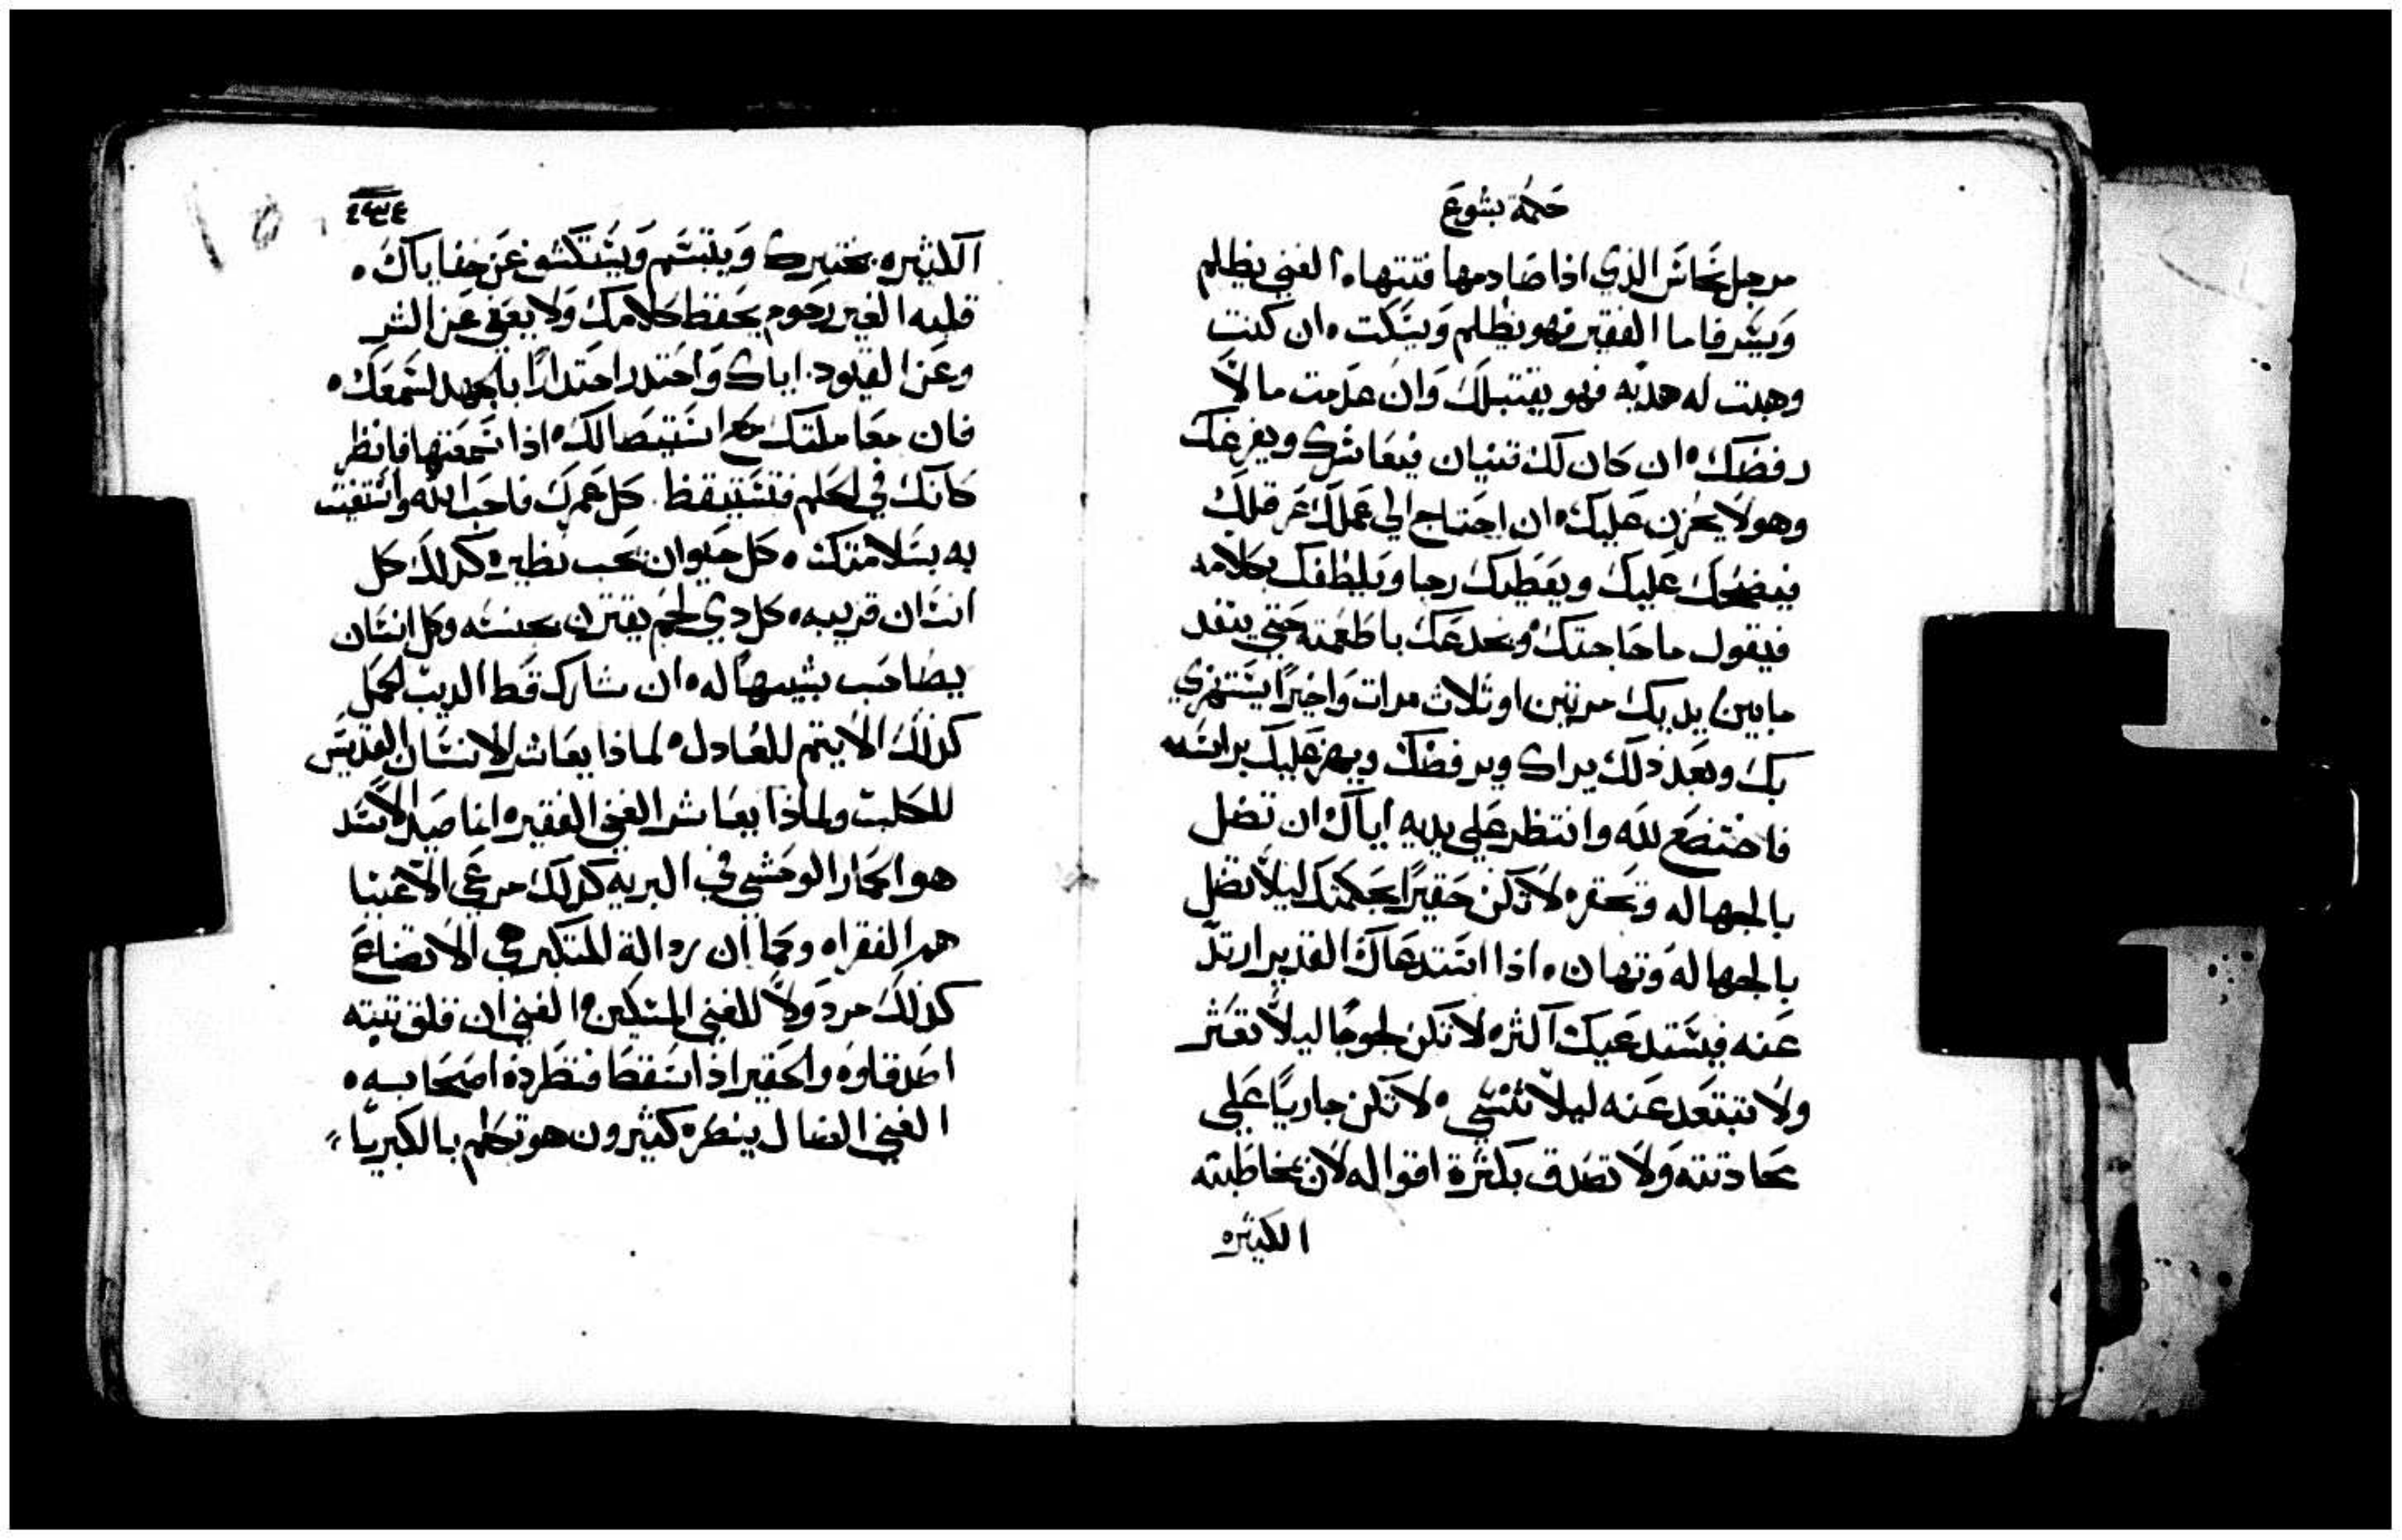 حكمة يشوع
مرجل نحاس الذي اذا صادمها فتتها ه الغني يظلم
ويشر فاما الفقير فهو يظلم ويسكت ه ان كنت
وهبت له هديه فهو يقتبلك وان عدمت مالاً
رفضك ه ان كان لك قنيان فيعاشرك ويفرغك
وهو لا يحزن عليك ه ان احتاج الي عملك غر قلبك
فيضحك عليك ويعطيك رجا ويلطفك بكلامه
فيقول ما حاجتك ويخدعك باطعمته حتي ينفد
ما بين يديك مرتين او ثلاث مرات واخيراً يستهزي
بك وبعد ذلك يراك ويرفضك ويهز عليك براسه
فاختضع لله وانتظر علي يديه اياك ان تضل
بالجهاله وتحقر ه لا تكن حقيراً بحكمتك ليلا تضل
بالجهاله وتهان ه اذا استدعاك القدير ارتدّ
عنه فيستدعيك اكثر ه لا تكن لجوجاً ليلا تعثر
ولا تبتعد عنه ليلا تنسي ه لا تكن جارياً علي
محادثته ولا تصدق بكثرة اقواله لان مخاطبته
الكثيره
الكثيره تختبرك ويتبسم ويستكشف عن خفاياك ه
قلبه الغير رحوم يحفظ كلامك ولا يعفي عن الشر
وعن القيود ه اياك واحتدر احتداراً بالجهد لسمعك ه
فان معاملتك مع استيصالك ه اذا سمعتها فانظر
كانك في الحلم فتستيقظ . كل عمرك فاحب الله واستغيث
به بسلامتك ه كل حيوان يحب نظيره كذلك كل
انسان قريبه ه كل دي لحم يقترن بجنسه وكل انسان
يصاحب شبيهاً له ه ان شارك قط الديب الحمل
كذلك الاثيم للعادل ه لماذا يعاشر الانسان القديس
للكلب ولماذا يعاشر الغني الفقير ه انما صيد الاسد
هو الحمار الوحشي في البريه كذلك مرعي الاغنيا
هم الفقراه وكما ان ردالة المتكبر هي الاتضاع
كذلك مردولاً للغني المسكين ه الغني ان قلق تثبته
اصدقاوه والحقير اذا سقط فتطرده اصحابه ه
الغني الضال ينصره كثيرون هو تكلم بالكبريا